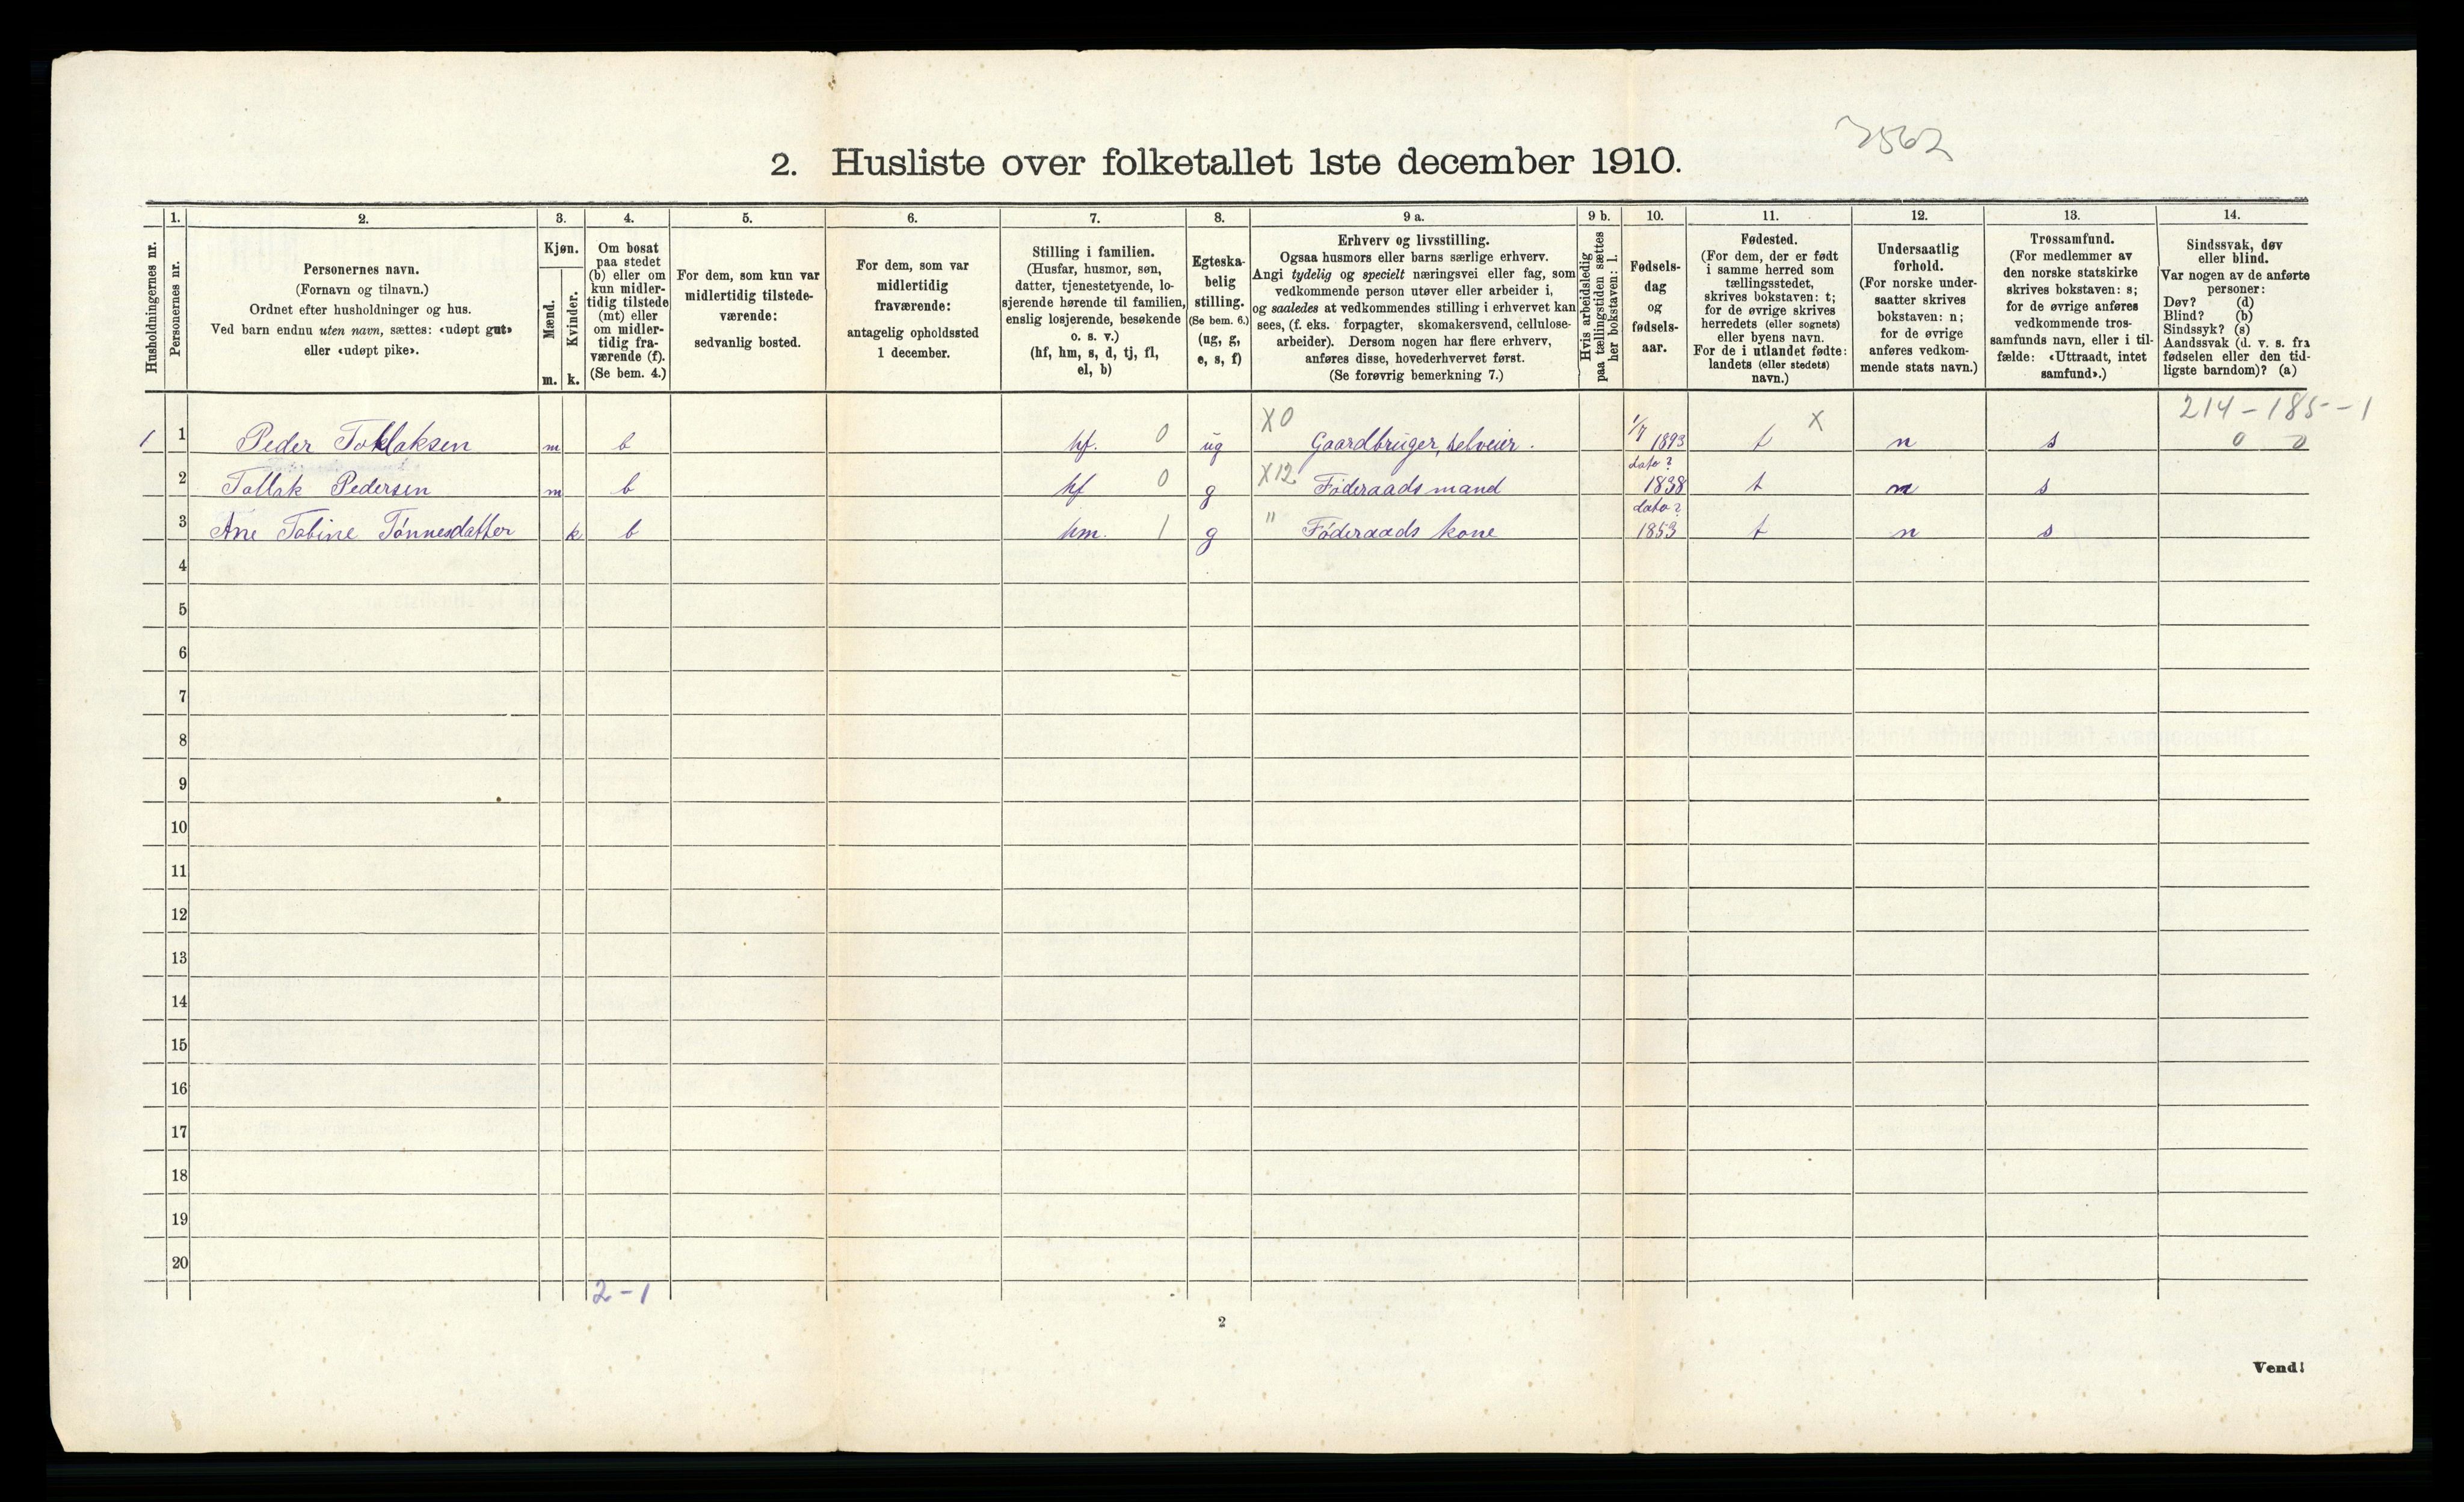 7562
2. Husliste over folketallet 1ste december 1910.
Husholdningernes nr.
1.
Personernes nr.
2.
Personernes navn.
(Fornavn og tilnavn.)
Ordnet efter husholdninger og hus.
Ved barn endnu uten navn, sættes: «udøpt gut»
eller «udøpt pike».
3.
Kjøn.
Mænd.
Kvinder.
m. k.
4.
Om bosat
paa stedet
(b) eller om
kun midler-
tidig tilstede
(mt) eller
om midler-
tidig fra-
værende (f).
(Se bem. 4.)
5.
For dem, som kun var
midlertidig tilstede-
værende:
sedvanlig bosted.
6.
For dem, som var
midlertidig
fraværende:
antagelig opholdssted
1 december.
7.
Stilling i familien.
(Husfar, husmor, søn,
datter, tjenestetyende, lo-
sjerende hørende til familien,
enslig losjerende, besøkende
o. s. v.)
(hf, hm, s, d, tj, fl,
el, b)
8.
Egteska-
belig
stilling.
(Se bem. 6.)
(ug, g,
e, s, f)
9 a.
Erhverv og livsstilling.
Ogsaa husmors eller barns særlige erhverv.
Angi tydelig og specielt næringsvei eller fag, som
vedkommende person utøver eller arbeider i,
og saaledes at vedkommendes stilling i erhvervet kan
sees, (f. eks. forpagter, skomakersvend, cellulose-
arbeider). Dersom nogen har flere erhverv,
anføres disse, hovederhvervet først.
(Se forøvrig bemerkning 7.)
9 b.
Hvis arbeidsledig
paa tællingstiden sættes
her bokstaven: l.
10.
Fødsels-
dag
og
fødsels-
aar.
11.
Fødested.
(For dem, der er født
i samme herred som
tællingsstedet,
skrives bokstaven: t;
for de øvrige skrives
herredets (eller sognets)
eller byens navn.
For de i utlandet fødte:
landets (eller stedets)
navn.)
12.
Undersaatlig
forhold.
(For norske under-
saatter skrives
bokstaven: n;
for de øvrige
anføres vedkom-
mende stats navn.)
13.
Trossamfund.
(For medlemmer av
den norske statskirke
skrives bokstaven: s;
for de øvrige anføres
vedkommende tros-
samfunds navn, eller i til-
fælde: «Uttraadt, intet
samfund».)
14.
Sindssvak, døv
eller blind.
Var nogen av de anførte
personer:
Døv? (d)
Blind? (b)
Sindssyk? (s)
Aandssvak (d. v. s. fra
fødselen eller den tid-
ligste barndom)? (a)
214-185-1
1 1 Peder Tollaksen m b hf. 0 ug X0 Gaardbruger, selveier. 1/7 1893 t X n s 0 0
2 Tollak Pedersen m b hf 0 g X12 Føderaadsmand dato? 1838 t n s
3 Ane Tobine Tønnesdatter k b hm. 1 g " Føderaads kone dato? 1853 t n s
4
5
6
7
8
9
10
11
12
13
14
15
16
17
18
19
20
2-1
2
Vend!